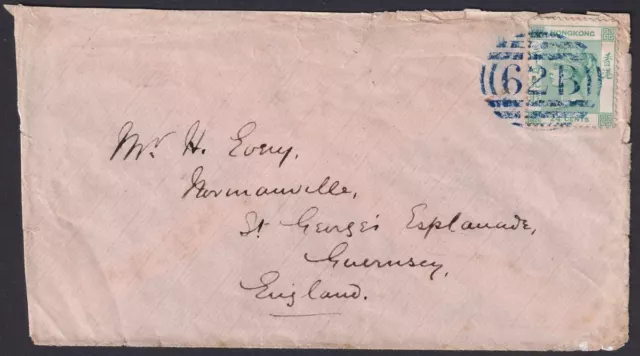 HONGKONG
62B
CENTS
Mr. H. Every,
Normanville,
St George's Esplanade,
Guernsey,
England.